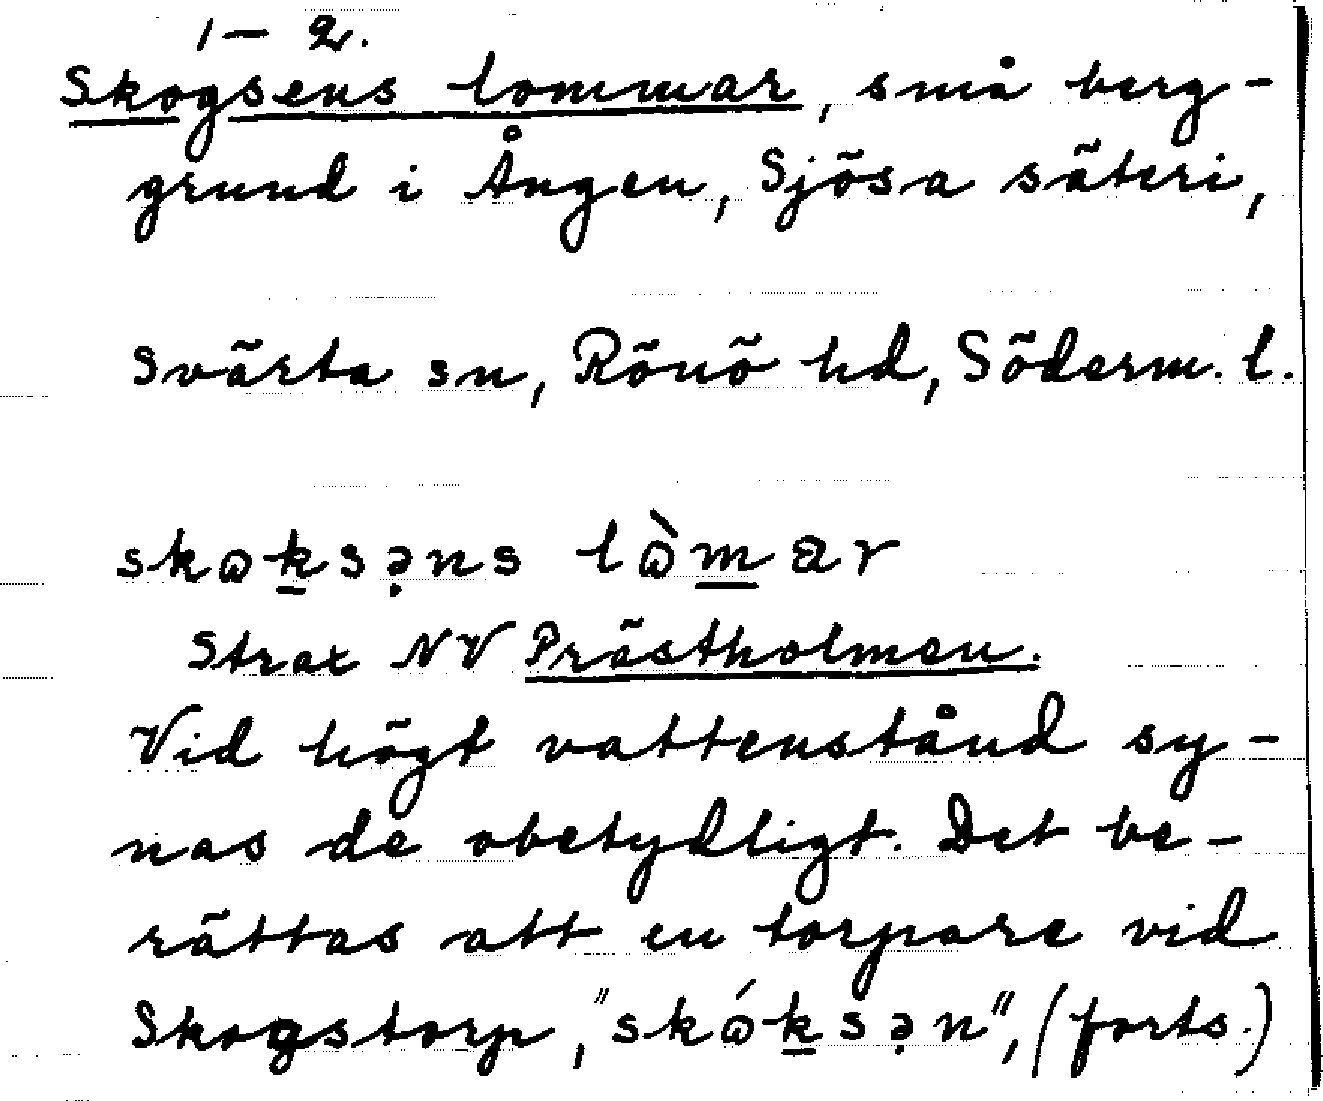 1 – 2.
Skogsens lommar, små berg-
grund i Ången, Sjösa säteri,
Svärta sn, Rönö hd, Söderm. l.
skɷksə̣ns lɷ̀mar
Strax NV Prästholmen.
Vid högt vattenstånd sy-
nas de obetydligt. Det be-
rättas att en torpare vid
Skogstorp, "skɷ́ksə̣n", (forts.)